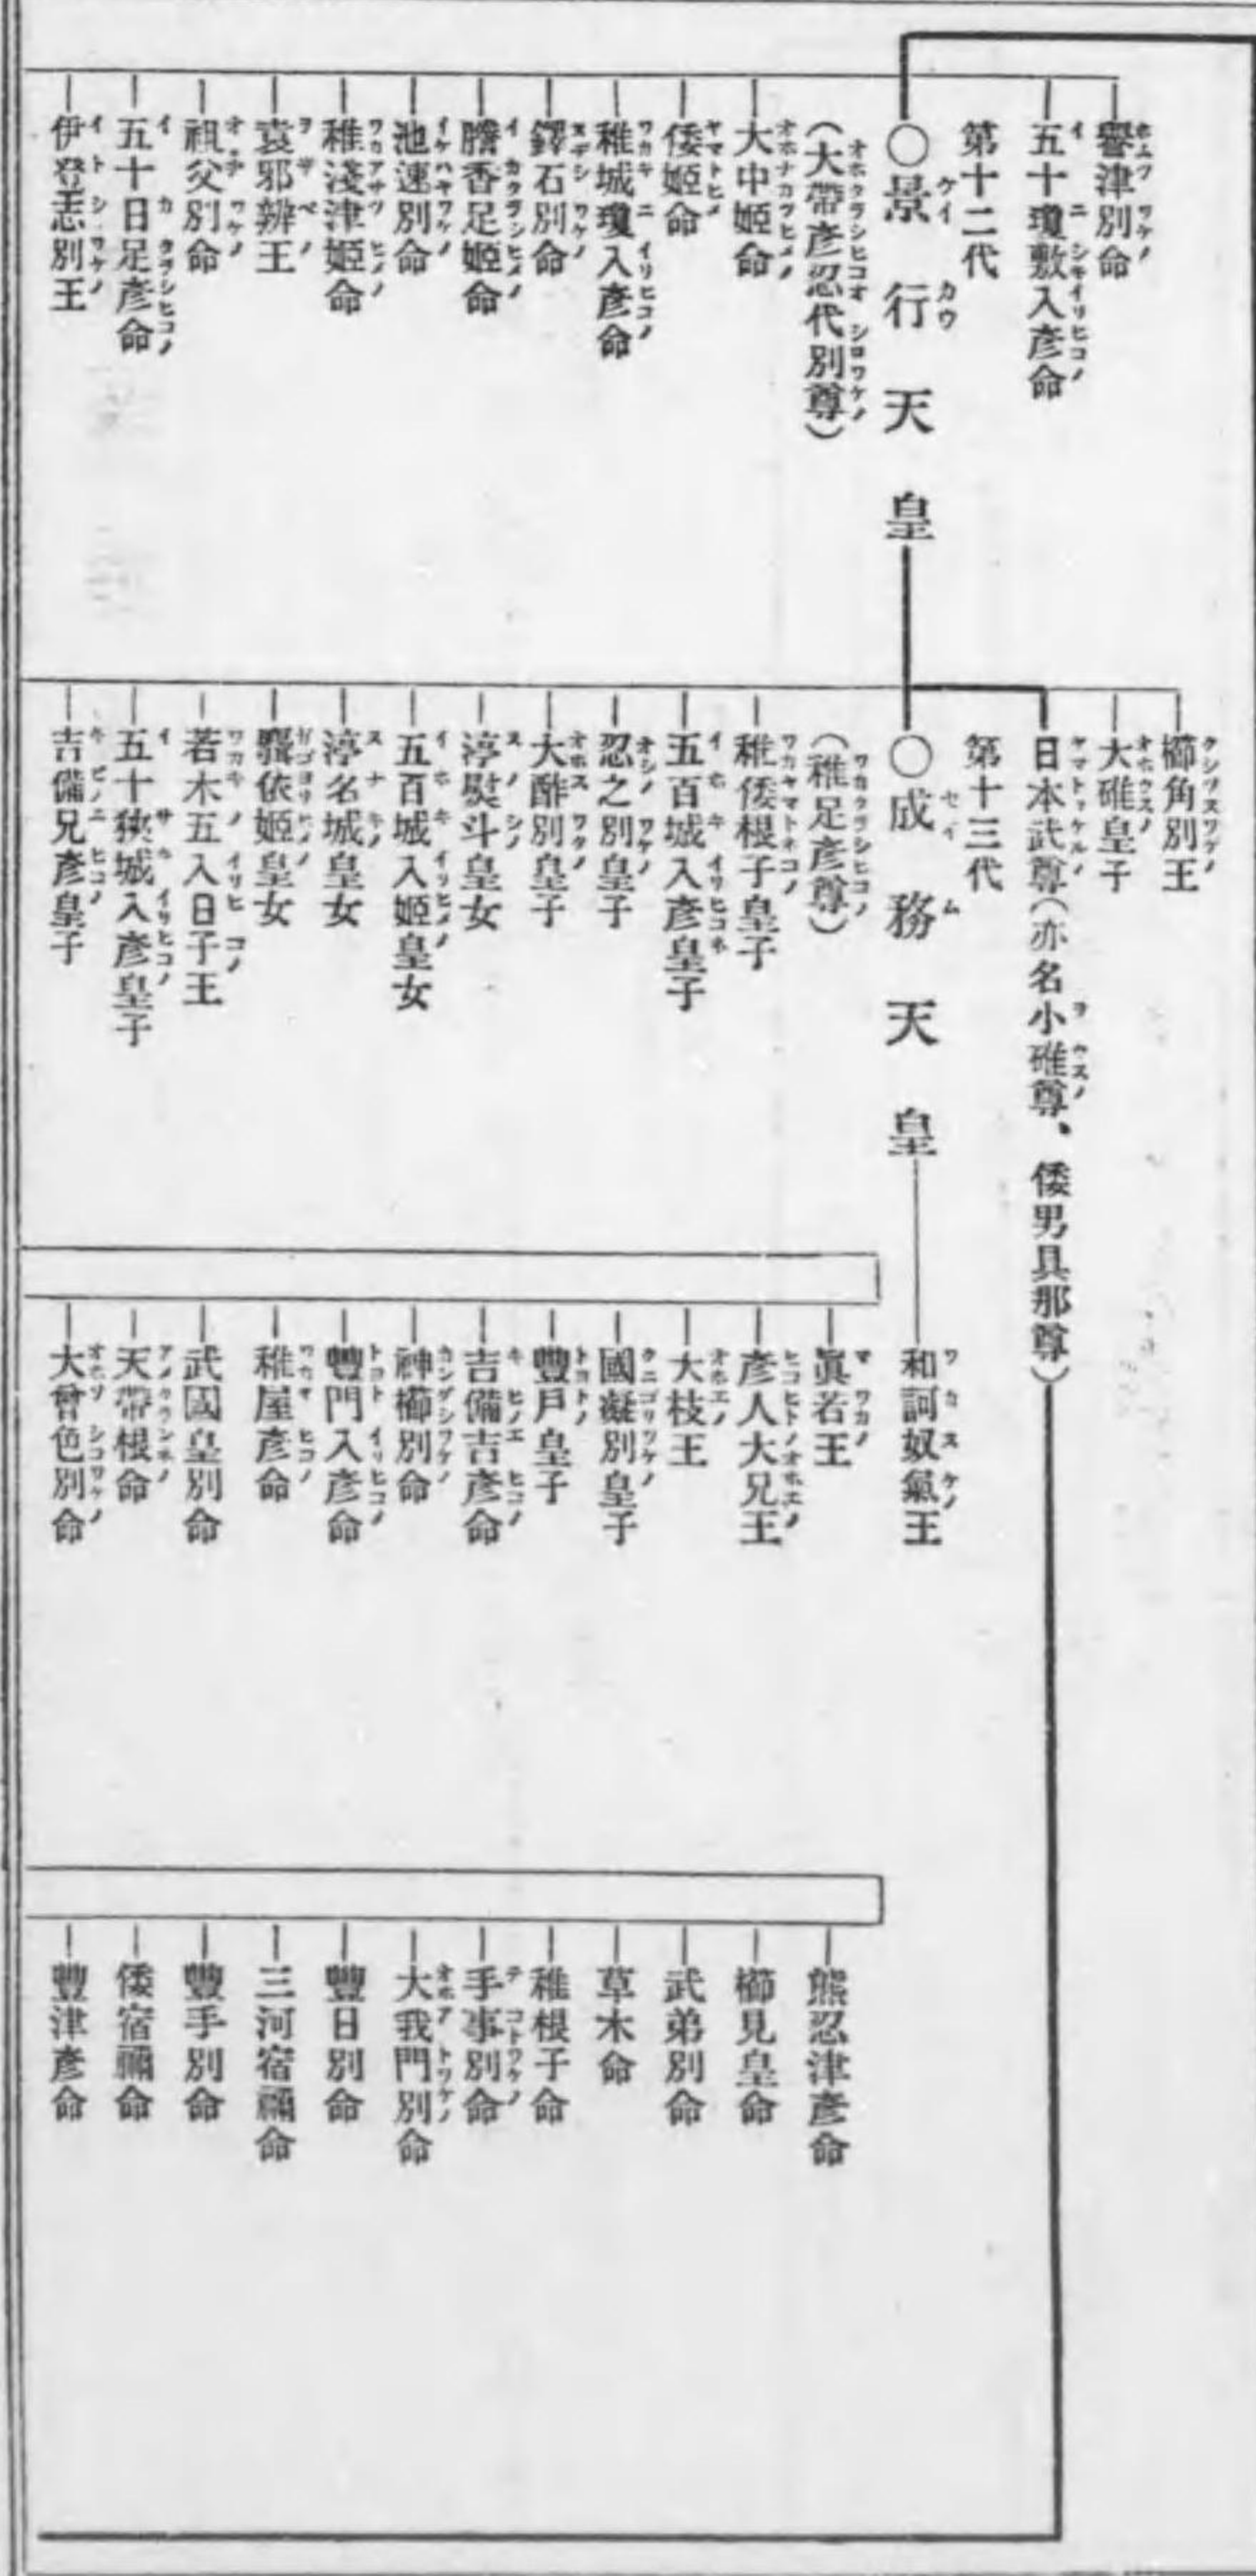 譽津別命
五十瓊敷入彥命
第十二代
○景行天皇
(大帶彥忍代別尊)
大中姬命
倭姬命
稚城瓊入彥命
鐸石別命
膽香足姬命
池速別命
稚淺津姬命
袁邪辨王
祖父別命
五十日足彥命
伊登志別王
櫛角別王
大碓皇子
日本武尊(亦名小碓尊、倭男具那尊)
第十三代
○成務天皇
(稚足彥尊)
稚倭根子皇子
五百城入彥皇子
忍之別皇子
大酢別皇子
渟熨斗皇女
五百城入姬皇女
渟名城皇女
依姬皇女
若木五入日子王
五十狹城入彥皇子
吉備兄彥皇子
和訶奴氣王
眞若王
彥人大兄王
大枝王
國凝別皇子
豐戶皇子
吉備吉彥命
神櫛別命
豐門入彥命
稚屋彥命
武國皇別命
天帶根命
大曾色別命
熊忍津彥命
櫛見皇命
武弟別命
草木命
稚根子命
手事別命
大我門別命
豐日別命
三河宿禰命
豐手別命
倭宿禰命
豐津彥命